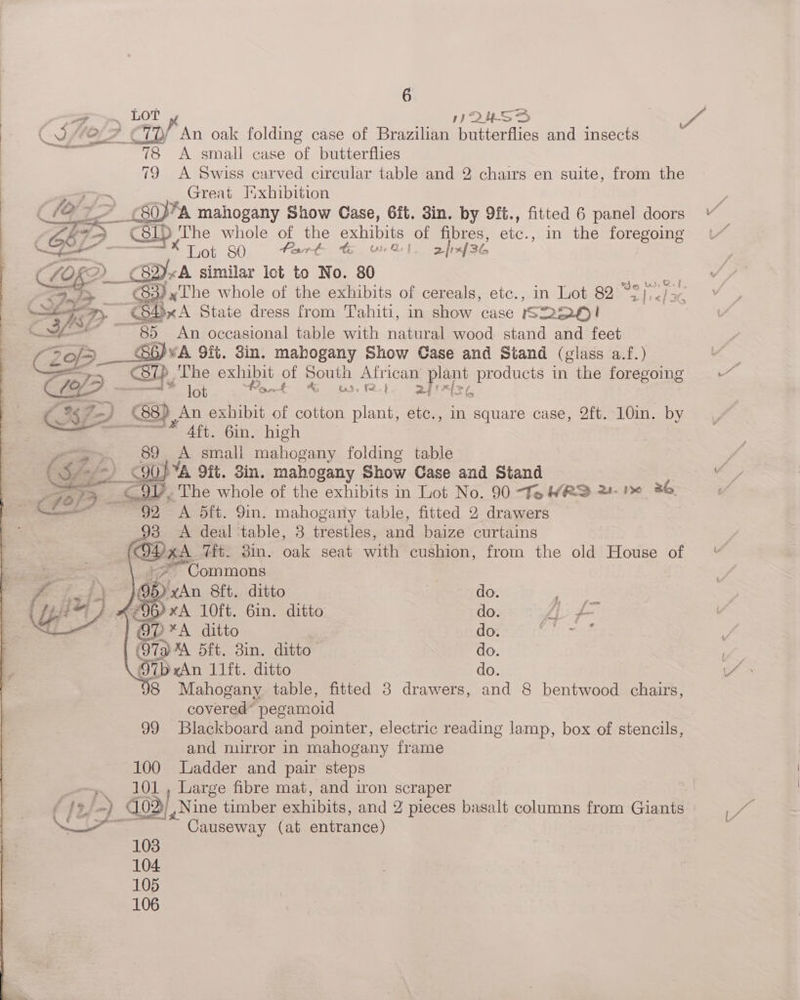 6
LOT
77 An oak folding case of Brazilian butterflies and insects
78 A small case of butterflies
79 A Swiss carved circular table and 2 chairs en suite, from the
Great Exhibition
80 A mahogany Show Case, 6ft. 3in. by 9ft., fitted 6 panel doors
81 The whole of the exhibits of fibres, etc., in the foregoing
Lot 80
82 A similar lot to No. 80
83 The whole of the exhibits of cereals, etc., in Lot 82
84 A State dress from Tahiti, in show case
85 An occasional table with natural wood stand and feet
86 A 9ft. 3in. mahogany Show Case and Stand (glass a.f.)
87 The exhibit of South African plant products in the foregoing
lot
88 An exhibit of cotton plant, etc., in square case, 2ft. 10in. by
4ft. 6in. high
89 A small mahogany folding table
90 A 9ft. 3in. mahogany Show Case and Stand
91 The whole of the exhibits in Lot No. 90 To
92 A 5ft. 9in. mahogany table, fitted 2 drawers
93 A deal table, 3 trestles, and baize curtains
94 A 7ft. 3in. oak seat with cushion, from the old House of
Commons
95 An 8ft. ditto do.
96 A 10ft. 6in. ditto do.
97 A ditto do.
97a A 5ft. 3in. ditto do.
97b An 11ft. ditto do.
98 Mahogany table, fitted 3 drawers, and 8 bentwood chairs,
covered pegamoid
99 Blackboard and pointer, electric reading lamp, box of stencils,
and mirror in mahogany frame
100 Ladder and pair steps
101 Large fibre mat, and iron scraper
102 Nine timber exhibits, and 2 pieces basalt columns from Giants
Causeway (at entrance)
103
104
105
106